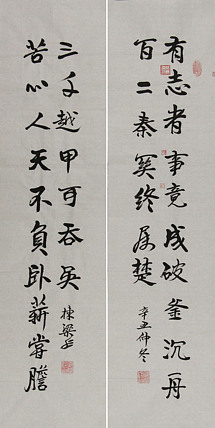 有志者事竟成破釜沉舟
百二秦关终属楚
辛丑仲冬
苦心人天不負卧薪嘗膽
三千越甲可吞吴
棟梁书